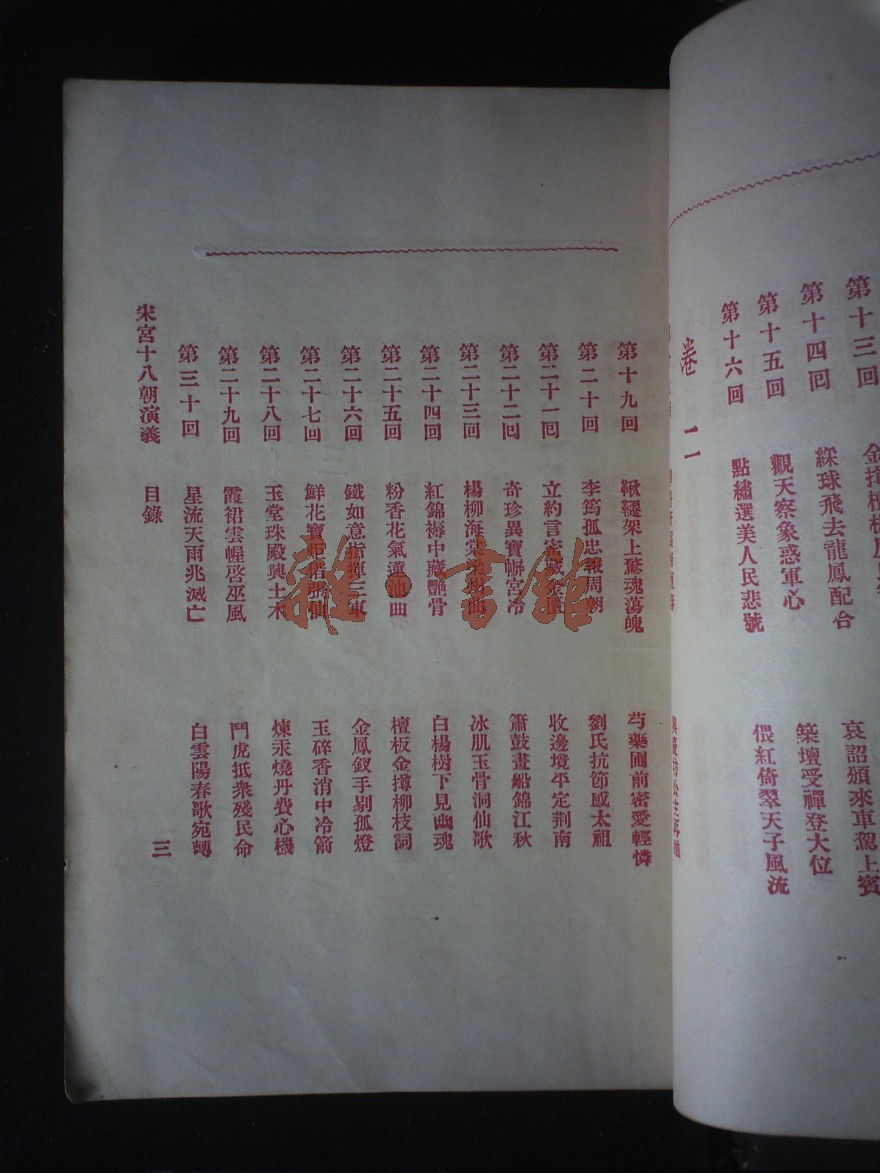 第十三回
第十四回 綵球飛去龍鳳配合 哀詔頒來車駕上賓
第十五回 觀天察象惑軍心 築壇受禪登大位
第十六回 點繡選美人民悲號 偎紅倚翠天子風流
卷二
第十九回 鞦韆架上驚魂蕩魄 芍藥圃前密愛輕憐
第二十回 李筠孤忠報周朝 劉氏抗節感太祖
第二十一回 立約言 收邊境平定荆南
第二十二回 奇珍異寶輧宮冷 簫鼓畫船錦江秋
第二十三回 楊柳海棠 冰肌玉骨洞仙歌
第二十四回 紅錦褥中藏艷骨 白楊樹下見幽魂
第二十五回 粉香花氣蓮池曲 檀板金撙柳枝詞
第二十六回 鐵如意指揮三軍 金鳳釵手剔孤燈
第二十七回 鮮花寶炬 玉碎香消中冷箭
第二十八回 玉堂珠殿興土木 煉汞燒丹費心機
第二十九回 霞裙雲幄啓巫風 鬥虎抵衆殘民命
第三十回 星流天雨兆滅亡 白雲陽春歌宛轉
宋宮十八朝演義 目錄 三
雜·書館